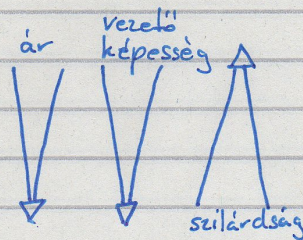 ár
vezető
képesség
szilárdság